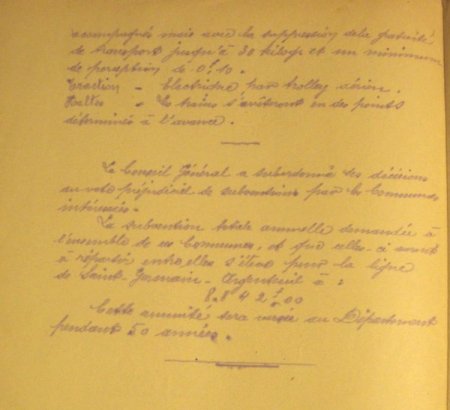 accompagnés mais avec la suppression de la gratuité
de transport jusqu'à 30 kilogs et un minimum
de perception de 0f,10.
Traction - Electrique par trolley aérien.
Haltes - Les trains s'arrêteront en des points
déterminés à l'avance.
Le Conseil Général a subordonné ses décisions
au vote préjudiciel de subventions par les Communes
intéressées.
La subvention totale annuelle demandée à
l'ensemble de ces Communes, et que celles-ci auront
à répartir entre elles s'élève pour la ligne
de Saint-Germain-Argenteuil à :
8.842f,00
Cette annuité sera versée au Département
pendant 50 années.